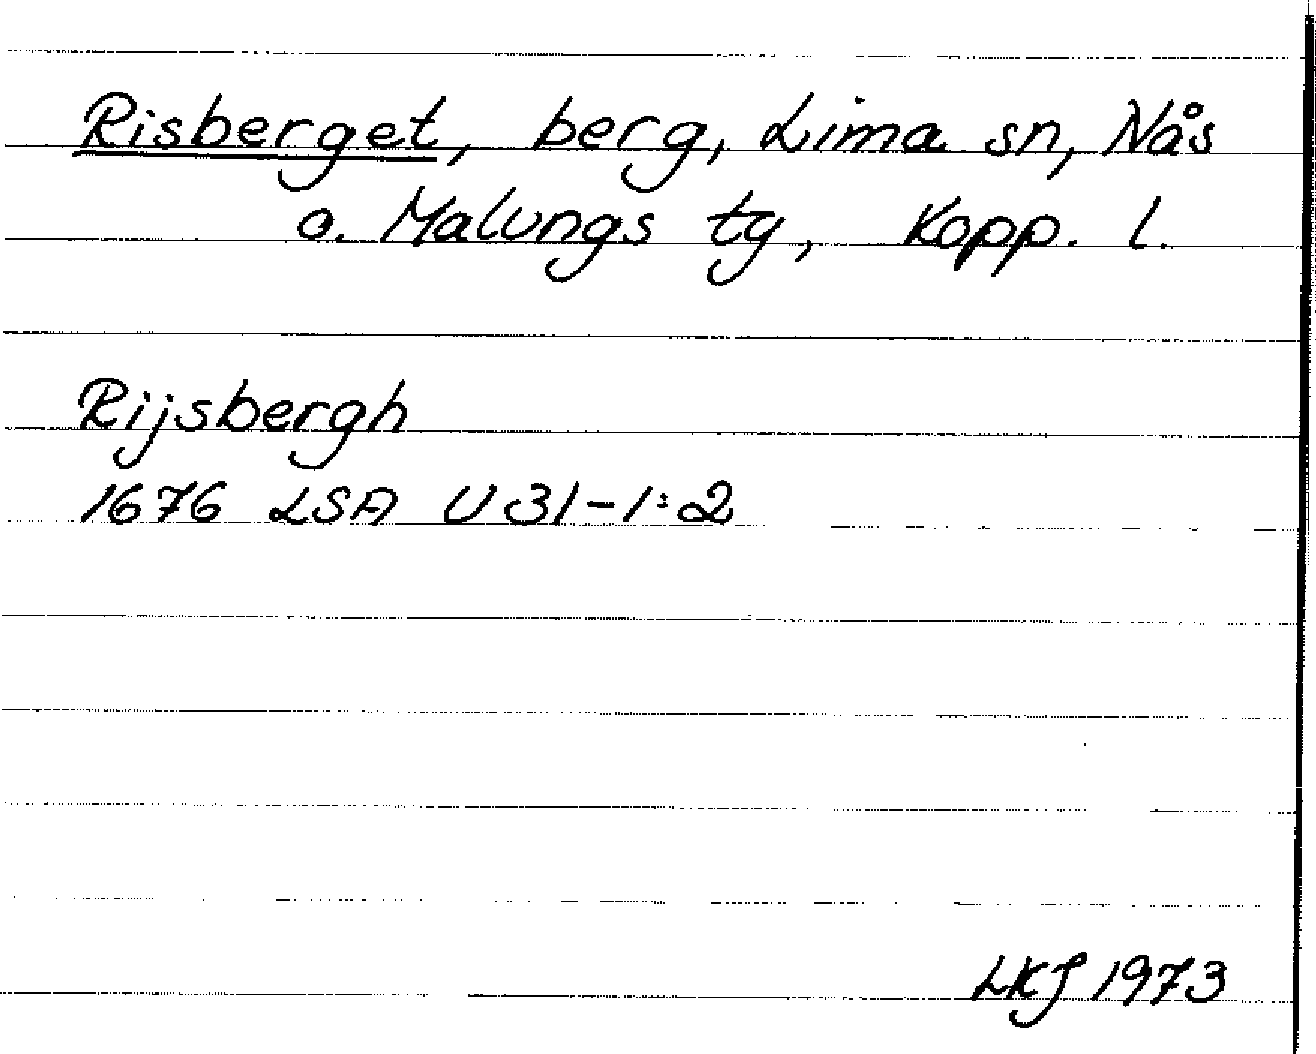 Risberget, berg, Lima sn, Nås
o. Malungs tg, Kopp. l.
Rijsbergh
1676 LSA U 31-1:2
LKJ 1973